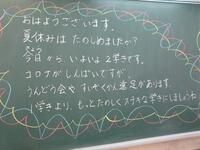 おはようございます。
夏休みは たのしめましたか？
今日から、いよいよ2学きです。
コロナがしんぱいですが、
うんどう会や すいぞくかん遠足があります。
1学きより、もっとたのしく ステキな学きにしましょうね